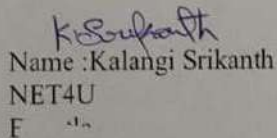 K Srikanth
Name :Kalangi Srikanth
NET4U